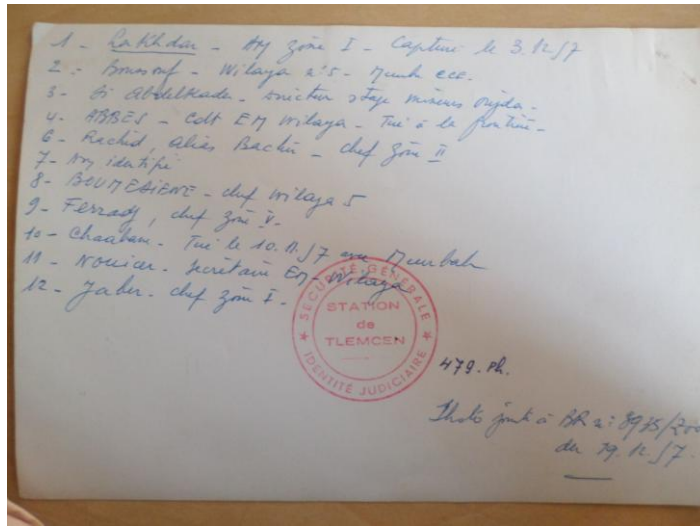 1 - Lakhdar - Adj zône I - Capturé le 3.12.57
2 - Boussouf - Wilaya n°5 - Memb CCE.
3 - Si Abdelkader - Directeur stage mineurs Oujda -
4 - ABBES - Cdt EM Wilaya - Tué à la frontière -
6 - Rachid, alias Bachir - chef zône II
7 - identifié
8 - BOUMEDIENE - chef Wilaya 5
9 - Ferradj, chef zône V.
10 - Chaabane - Tué le 10.11.57 avec
11 - NOUICER - Secrétaire EM - Wilaya
12 - Jaber - chef zône I -
SECURITÉ GÉNÉRALE
STATION
de
TLEMCEN
IDENTITÉ JUDICIAIRE
479. Ph.
Photo jointe à BR n°
du 19.12.57.